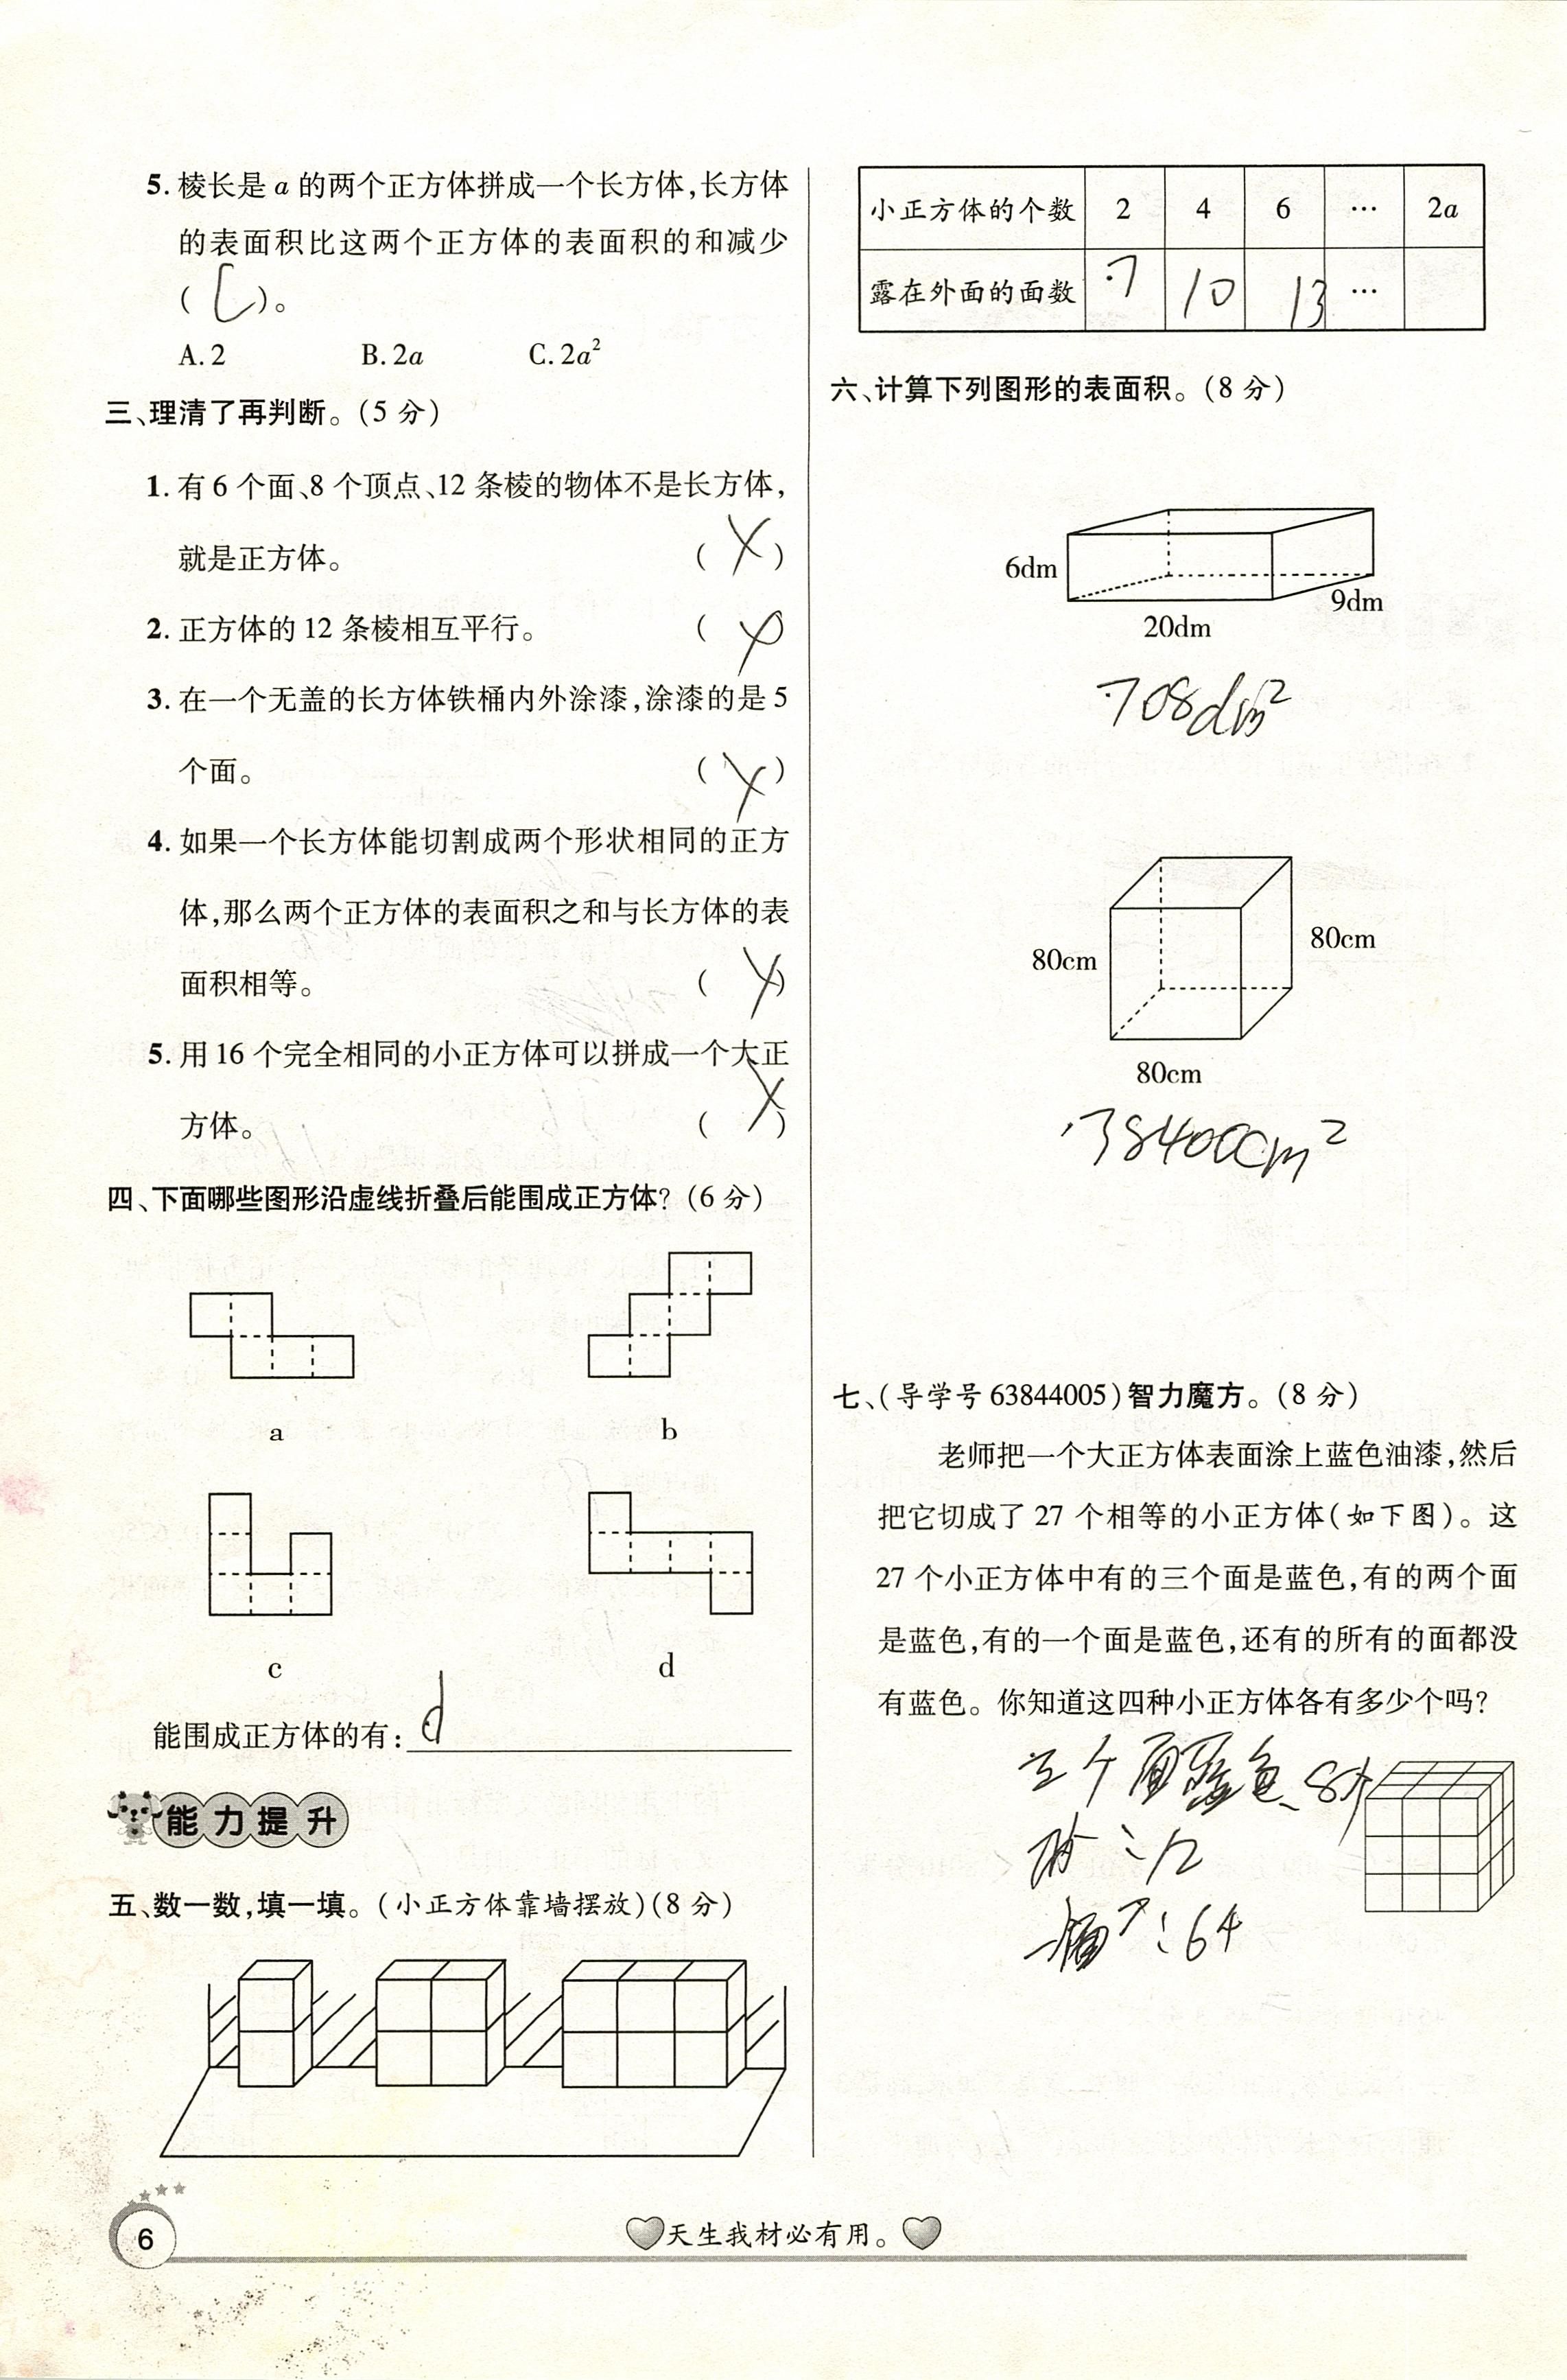 5. 棱长是 a 的两个正方体拼成一个长方体,长方体
的表面积比这两个正方体的表面积的和减少
( C )。
A. 2 B. 2a C. 2a²
三、理清了再判断。(5 分)
1. 有 6 个面、8 个顶点、12 条棱的物体不是长方体,
就是正方体。 ( X )
2. 正方体的 12 条棱相互平行。 ( X )
3. 在一个无盖的长方体铁桶内外涂漆,涂漆的是 5
个面。 ( X )
4. 如果一个长方体能切割成两个形状相同的正方
体,那么两个正方体的表面积之和与长方体的表
面积相等。 ( X )
5. 用 16 个完全相同的小正方体可以拼成一个大正
方体。 ( X )
四、下面哪些图形沿虚线折叠后能围成正方体? (6 分)
a b
c d
能围成正方体的有: d
能力提升
五、数一数,填一填。(小正方体靠墙摆放)(8 分)
小正方体的个数 2 4 6 … 2a
露在外面的面数 7 10 13 …
六、计算下列图形的表面积。(8 分)
6dm
9dm
20dm
708dm²
80cm
80cm
80cm
38400cm²
七、(导学号 63844005)智力魔方。(8 分)
老师把一个大正方体表面涂上蓝色油漆,然后
把它切成了 27 个相等的小正方体(如下图)。这
27 个小正方体中有的三个面是蓝色,有的两个面
是蓝色,有的一个面是蓝色,还有的所有的面都没
有蓝色。你知道这四种小正方体各有多少个吗?
三个面蓝色 8个
12
: 64
6
天生我材必有用。